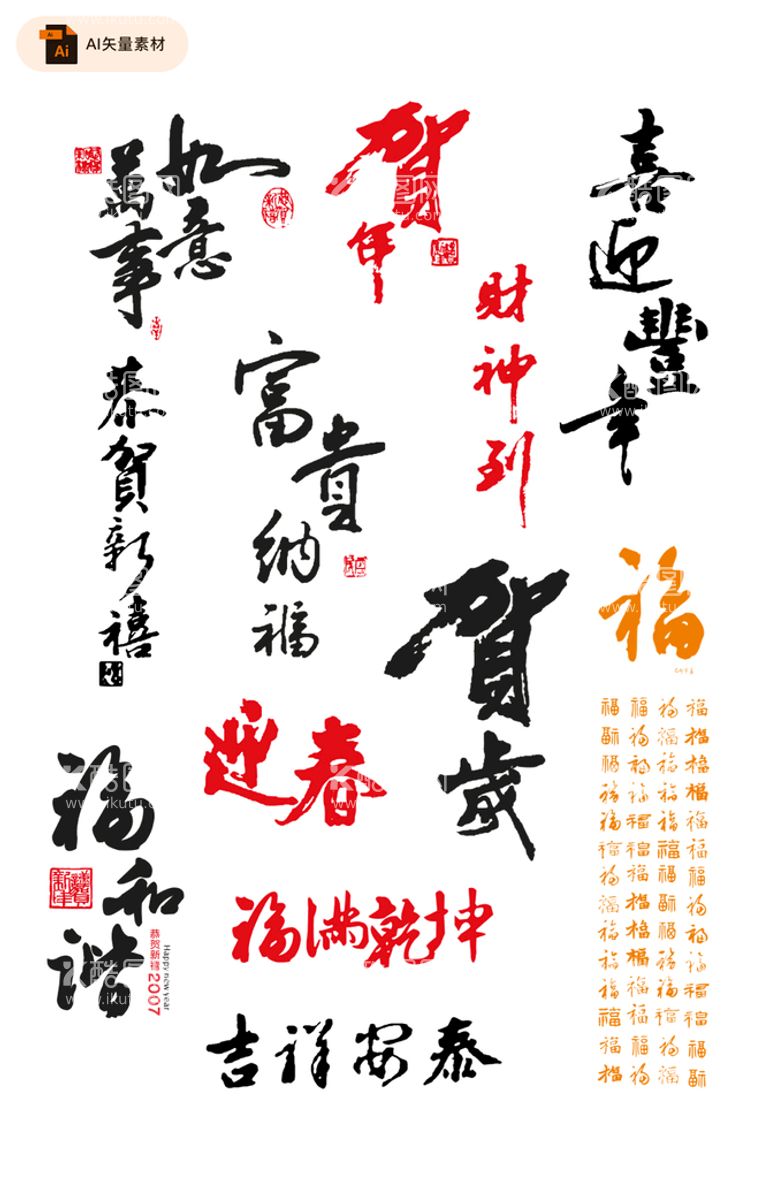 AI矢量素材
萬事
如意
贺
年
喜迎
豐年
財神到
恭賀新禧
富貴
納福
福
賀
歲
迎春
福
和
谐
恭贺新禧
2007
Happy new year
福满乾坤
吉祥安泰
福福福福
福福福福
福福福福
福福福福
福福福福
福福福福
福福福福
福福福福
福福福福
福福福福
福福福福
福福福福
福福福福
福福福福
酷图网
www.ikutu.com